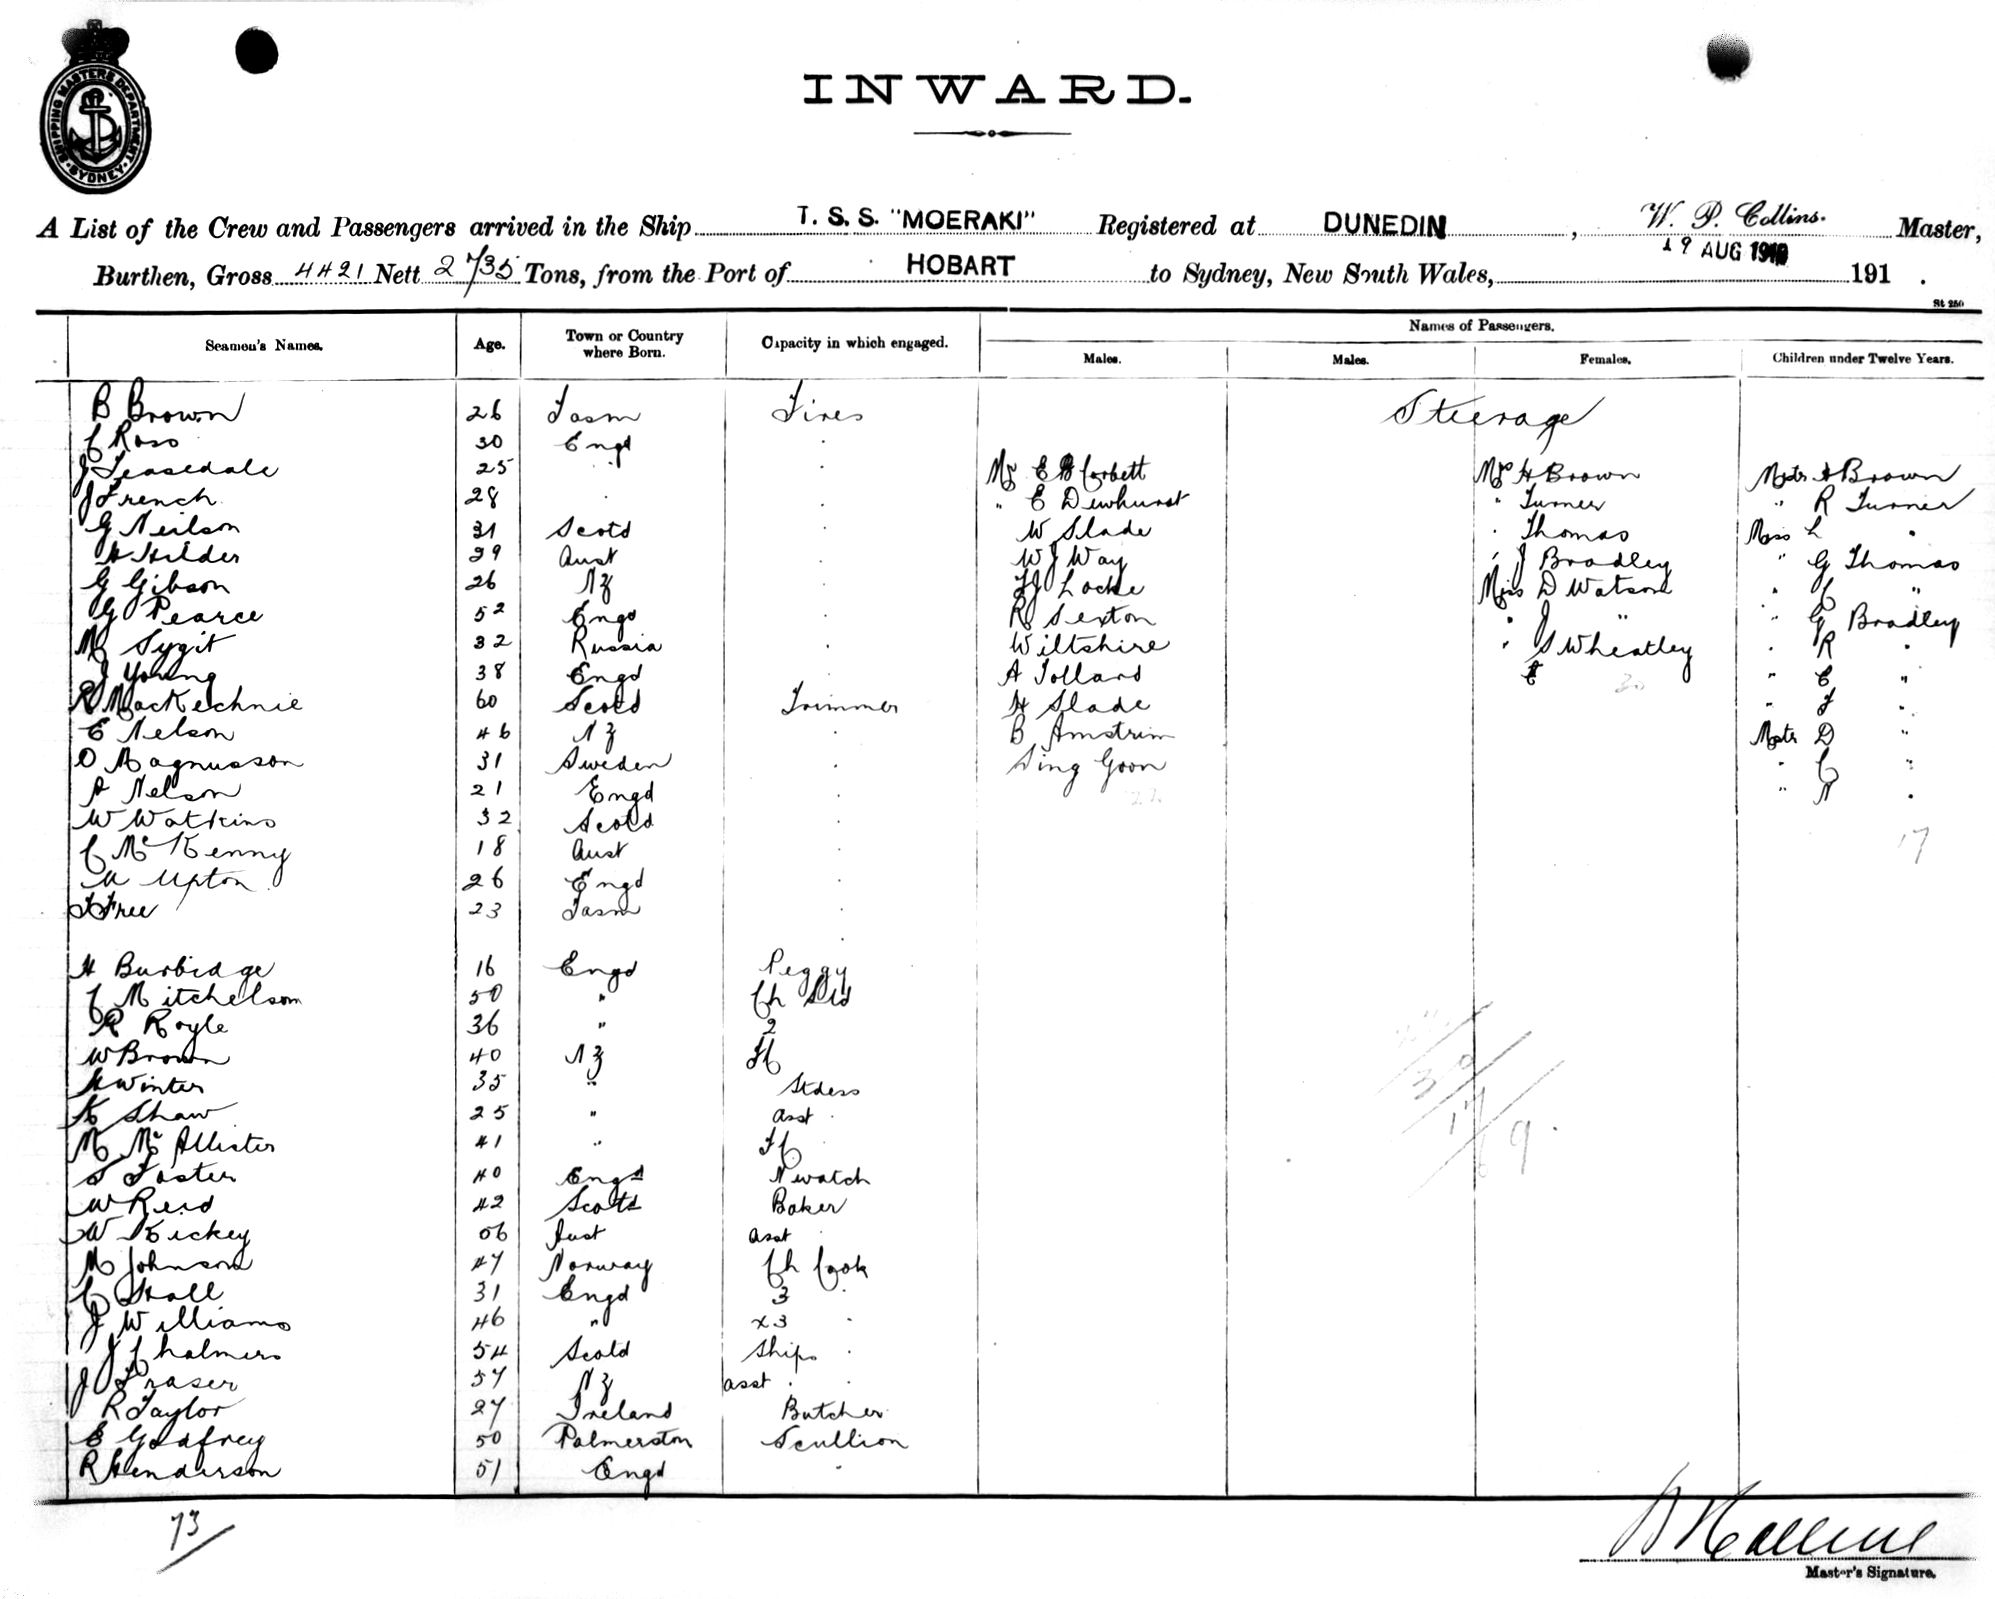 SHIPPING MASTERS DEPARTMENT
SYDNEY
INWARD.
A List of the Crew and Passengers arrived in the Ship T. S. S. "MOERAKI" Registered at DUNEDIN, W. P. Collins. Master,
Burthen, Gross 4421 Nett 2735 Tons, from the Port of HOBART to Sydney, New South Wales, 19 AUG 1910 191 .
St 250
Names of Passengers.
Seamen's Names. Age. Town or Country where Born. Capacity in which engaged. Males. Males. Females. Children under Twelve Years.
B Brown 26 Tasm Fires Steerage
C Ross 30 Engd "
J Teasedale 25 " " Mr E B Corbett Mrs H Brown Mstr A Brown
J French 28 " " " E Dewhurst " Turner " R Turner
G Neilson 31 Scotd " W Slade " Thomas Miss L "
H Hilder 29 Aust " W J Way " J Bradley " G Thomas
G Gibson 26 NZ " Locke Miss D Watson " C "
G Pearce 52 Engd " R Sexton " J " " G Bradley
M Sygit 32 Russia " Wiltshire " S Wheatley " R "
J Young 38 Engd " A Tollard E " E "
R MacKechnie 60 Scotd Trimmer H Slade 30 " F "
E Nelson 46 NZ " B Amstrim Mstr D "
O Magnusson 31 Sweden " Sing Goon " C "
A Nelson 21 Engd " 22 " A "
W Watkins 32 Scotd "
C McKenny 18 Aust " 17
Upton 26 Engd "
F Free 23 Tasm "
H Burbidge 16 Engd Peggy
C Mitchelson 50 " Ch Std
R Royle 36 " 2
W Brown 40 NZ FC
H Winter 35 " Stdess
K Shaw 25 " asst "
M McAllister 41 " FC
S Foster 40 Engd N watch
W Reid 42 Scotd Baker
W Hickey 56 Aust asst "
M Johnson 47 Norway Ch Cook
C Stall 31 Engd 3 "
J Williams 46 " x3 "
J Chalmers 54 Scotd Ships "
J Fraser 57 NZ asst "
R Taylor 27 Ireland Butcher
E Godfrey 50 Palmerston Scullion
R Henderson 51 Engd "
73
Master's Signature.